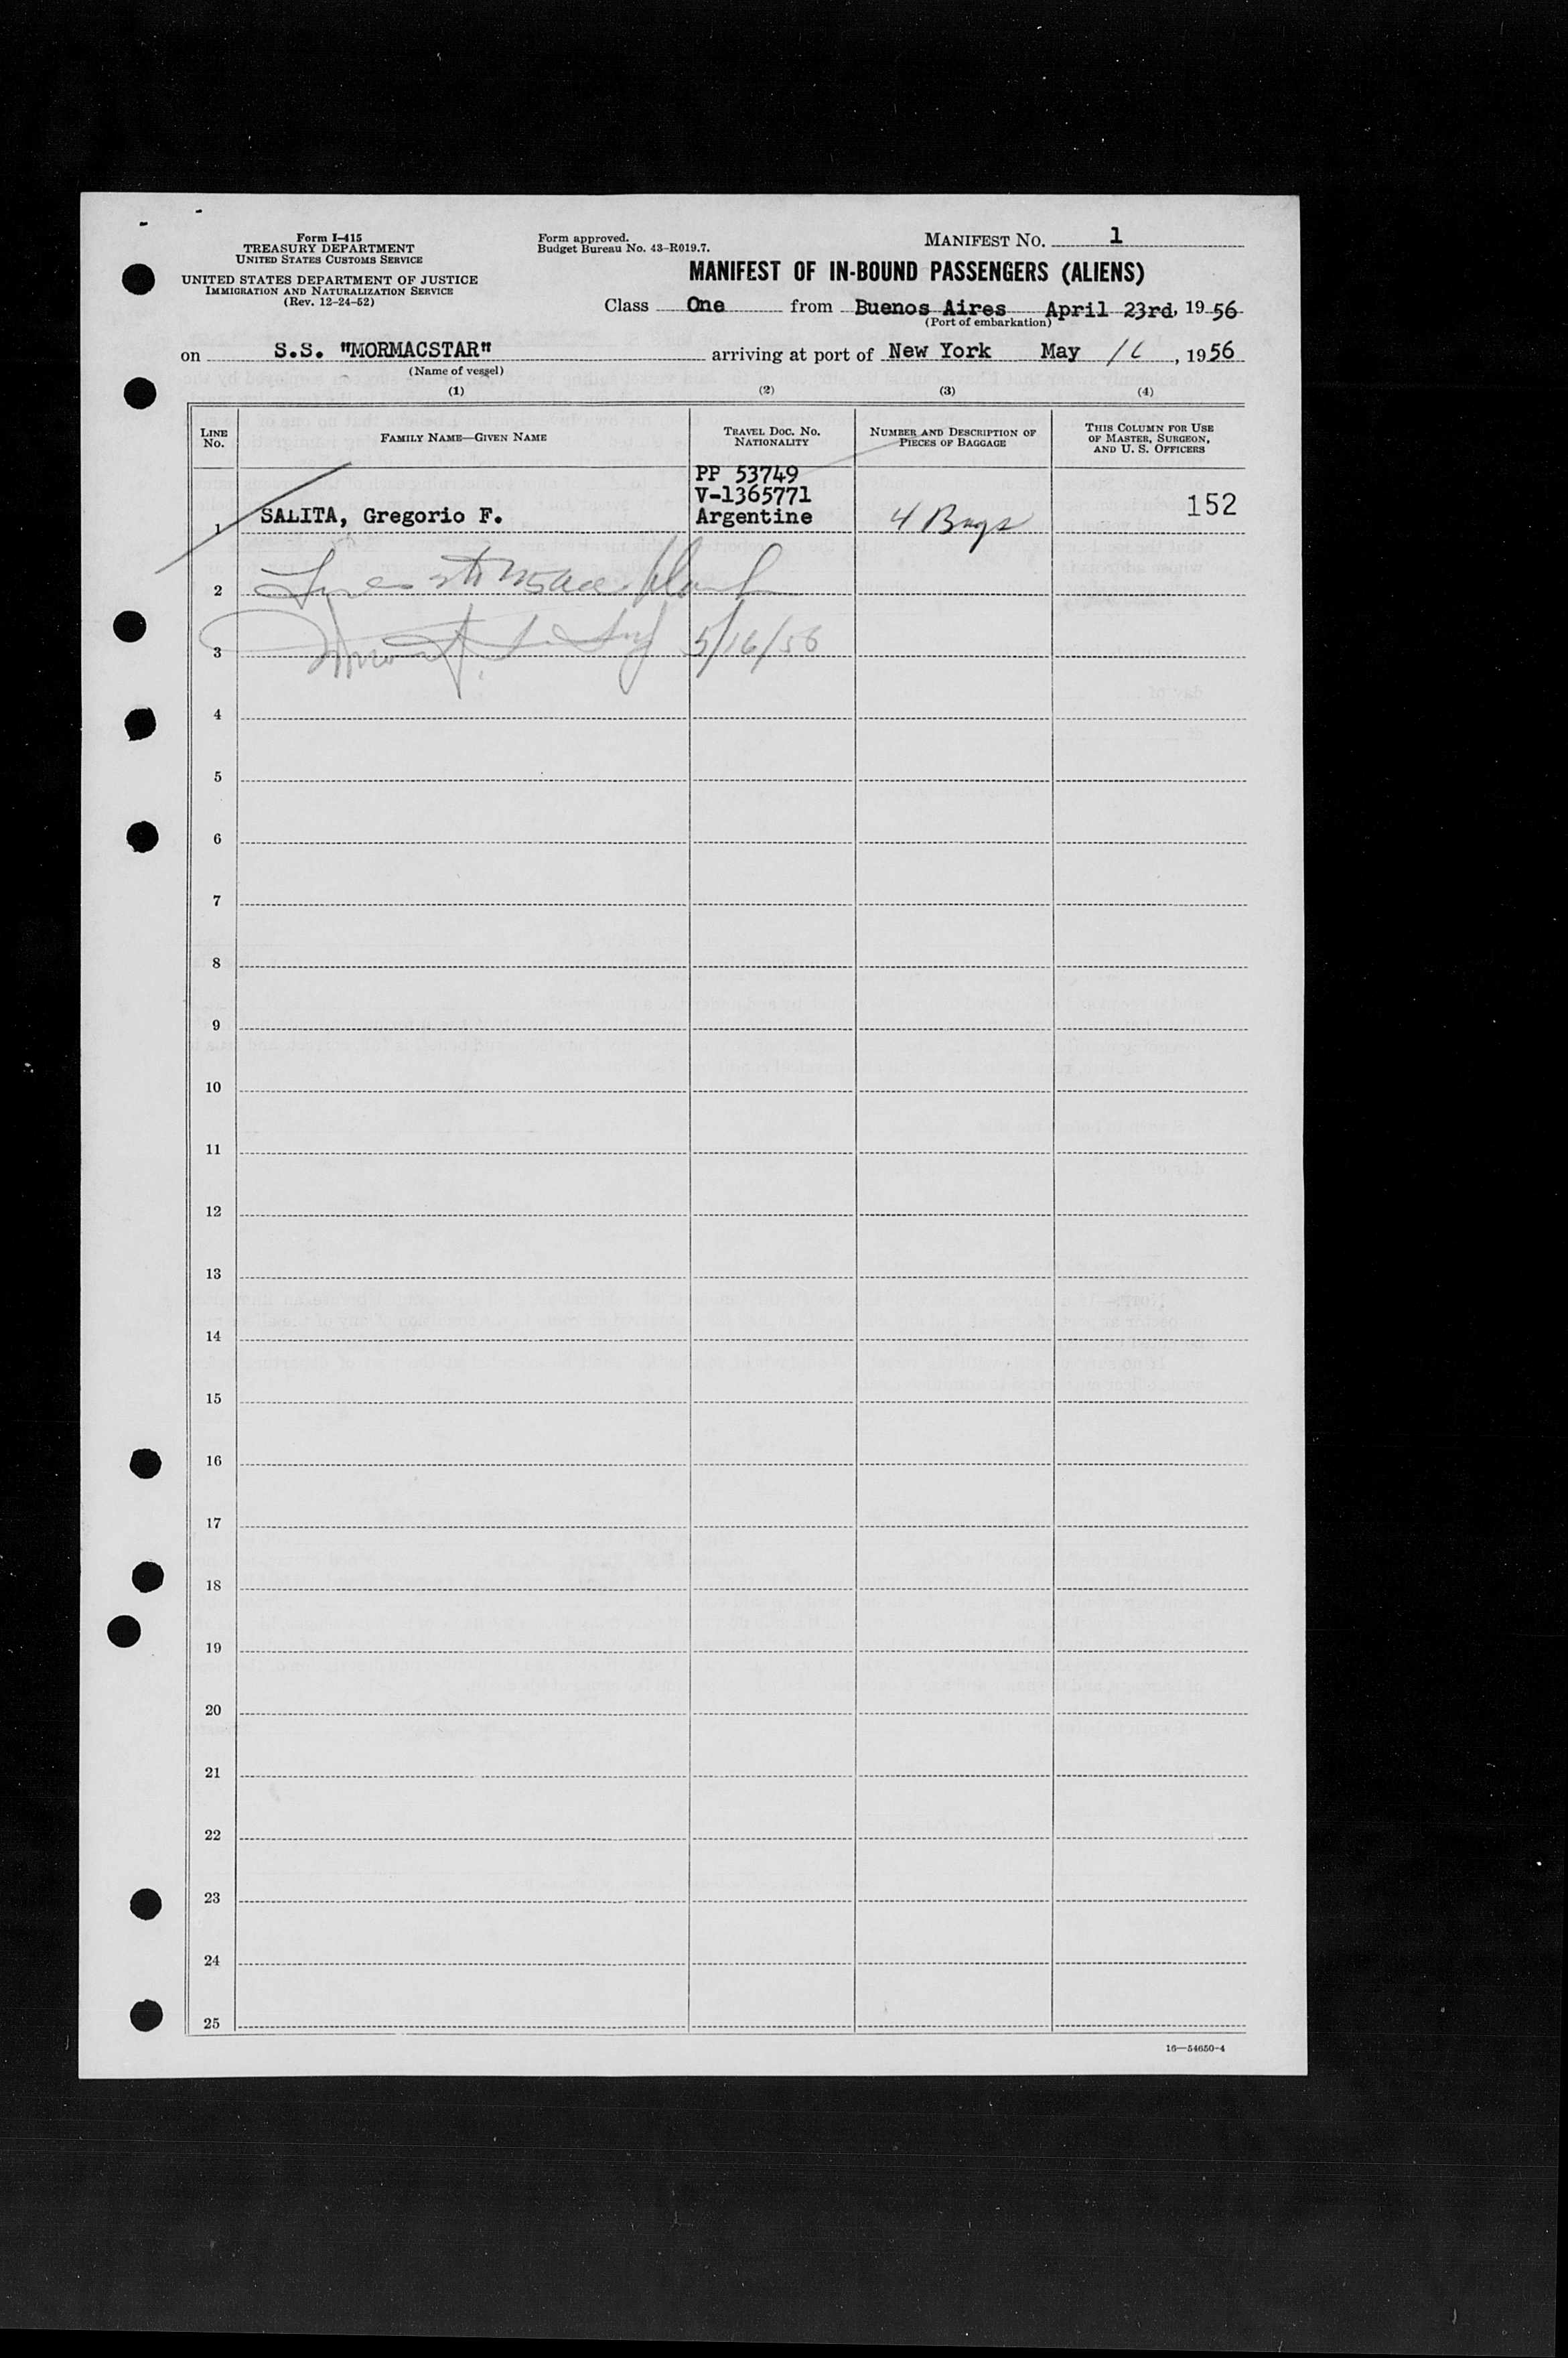 Form I-415
TREASURY DEPARTMENT
UNITED STATES CUSTOMS SERVICE
UNITED STATES DEPARTMENT OF JUSTICE
IMMIGRATION AND NATURALIZATION SERVICE
(Rev. 12-24-52)
Form approved.
Budget Bureau No. 43-R019.7.
MANIFEST NO. 1
MANIFEST OF IN-BOUND PASSENGERS (ALIENS)
Class One from Buenos Aires April 23rd, 1956
(Port of embarkation)
on S.S. "MORMACSTAR" arriving at port of New York May 16, 1956
(Name of vessel)
(1) (2) (3) (4)
LINE NO.
FAMILY NAME—GIVEN NAME
TRAVEL DOC. NO. NATIONALITY
NUMBER AND DESCRIPTION OF PIECES OF BAGGAGE
THIS COLUMN FOR USE OF MASTER, SURGEON, AND U. S. OFFICERS
PP 53749
V-1365771
1 SALITA, Gregorio F. Argentine 4 Bags 152
2
3 5/16/56
4
5
6
7
8
9
10
11
12
13
14
15
16
17
18
19
20
21
22
23
24
25
16—54650-4